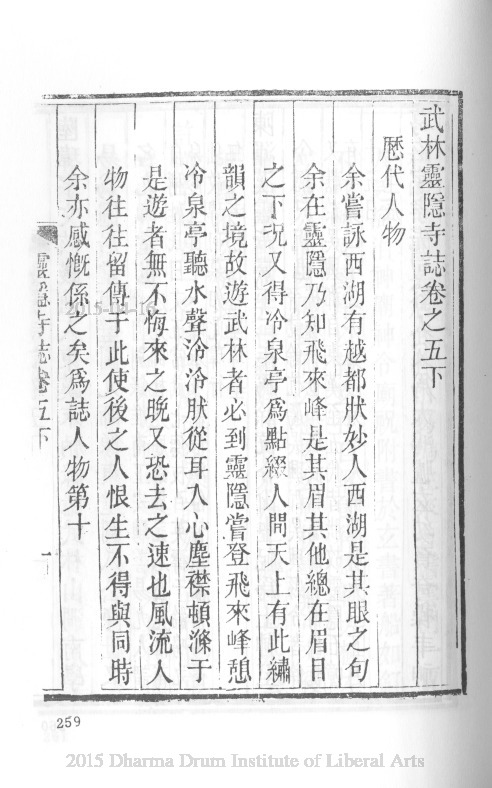 武林靈隱寺誌卷之五下
歷代人物
余嘗詠西湖有越都狀妙人西湖是其眼之句
余在靈隱乃知飛來峰是其眉其他總在眉目
之下況又得冷泉亭爲點綴人間天上有此繡
韻之境故遊武林者必到靈隱嘗登飛來峰憩
冷泉亭聽水聲泠泠肰從耳入心塵襟頓滌于
是遊者無不悔來之晚又恐去之速也風流人
物往往留傳于此使後之人恨生不得與同時
余亦感慨係之矣爲誌人物第十
靈隱寺誌 卷五下 一
259
2015 Dharma Drum Institute of Liberal Arts